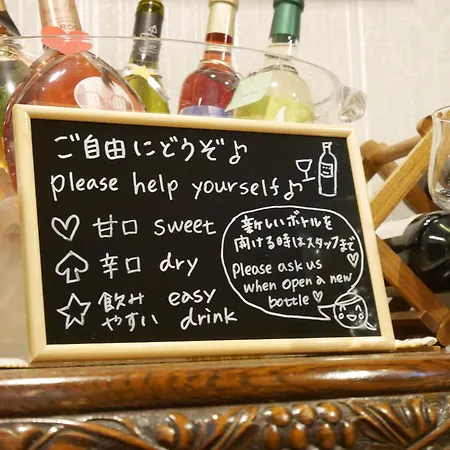 ご自由にどうぞ♪
please help yourself♪
♡ 甘口 sweet
♠ 辛口 dry
☆ 飲みやすい easy drink
新しいボトルを
開ける時はスタッフまで♡
Please ask us
when open a new
bottle♡